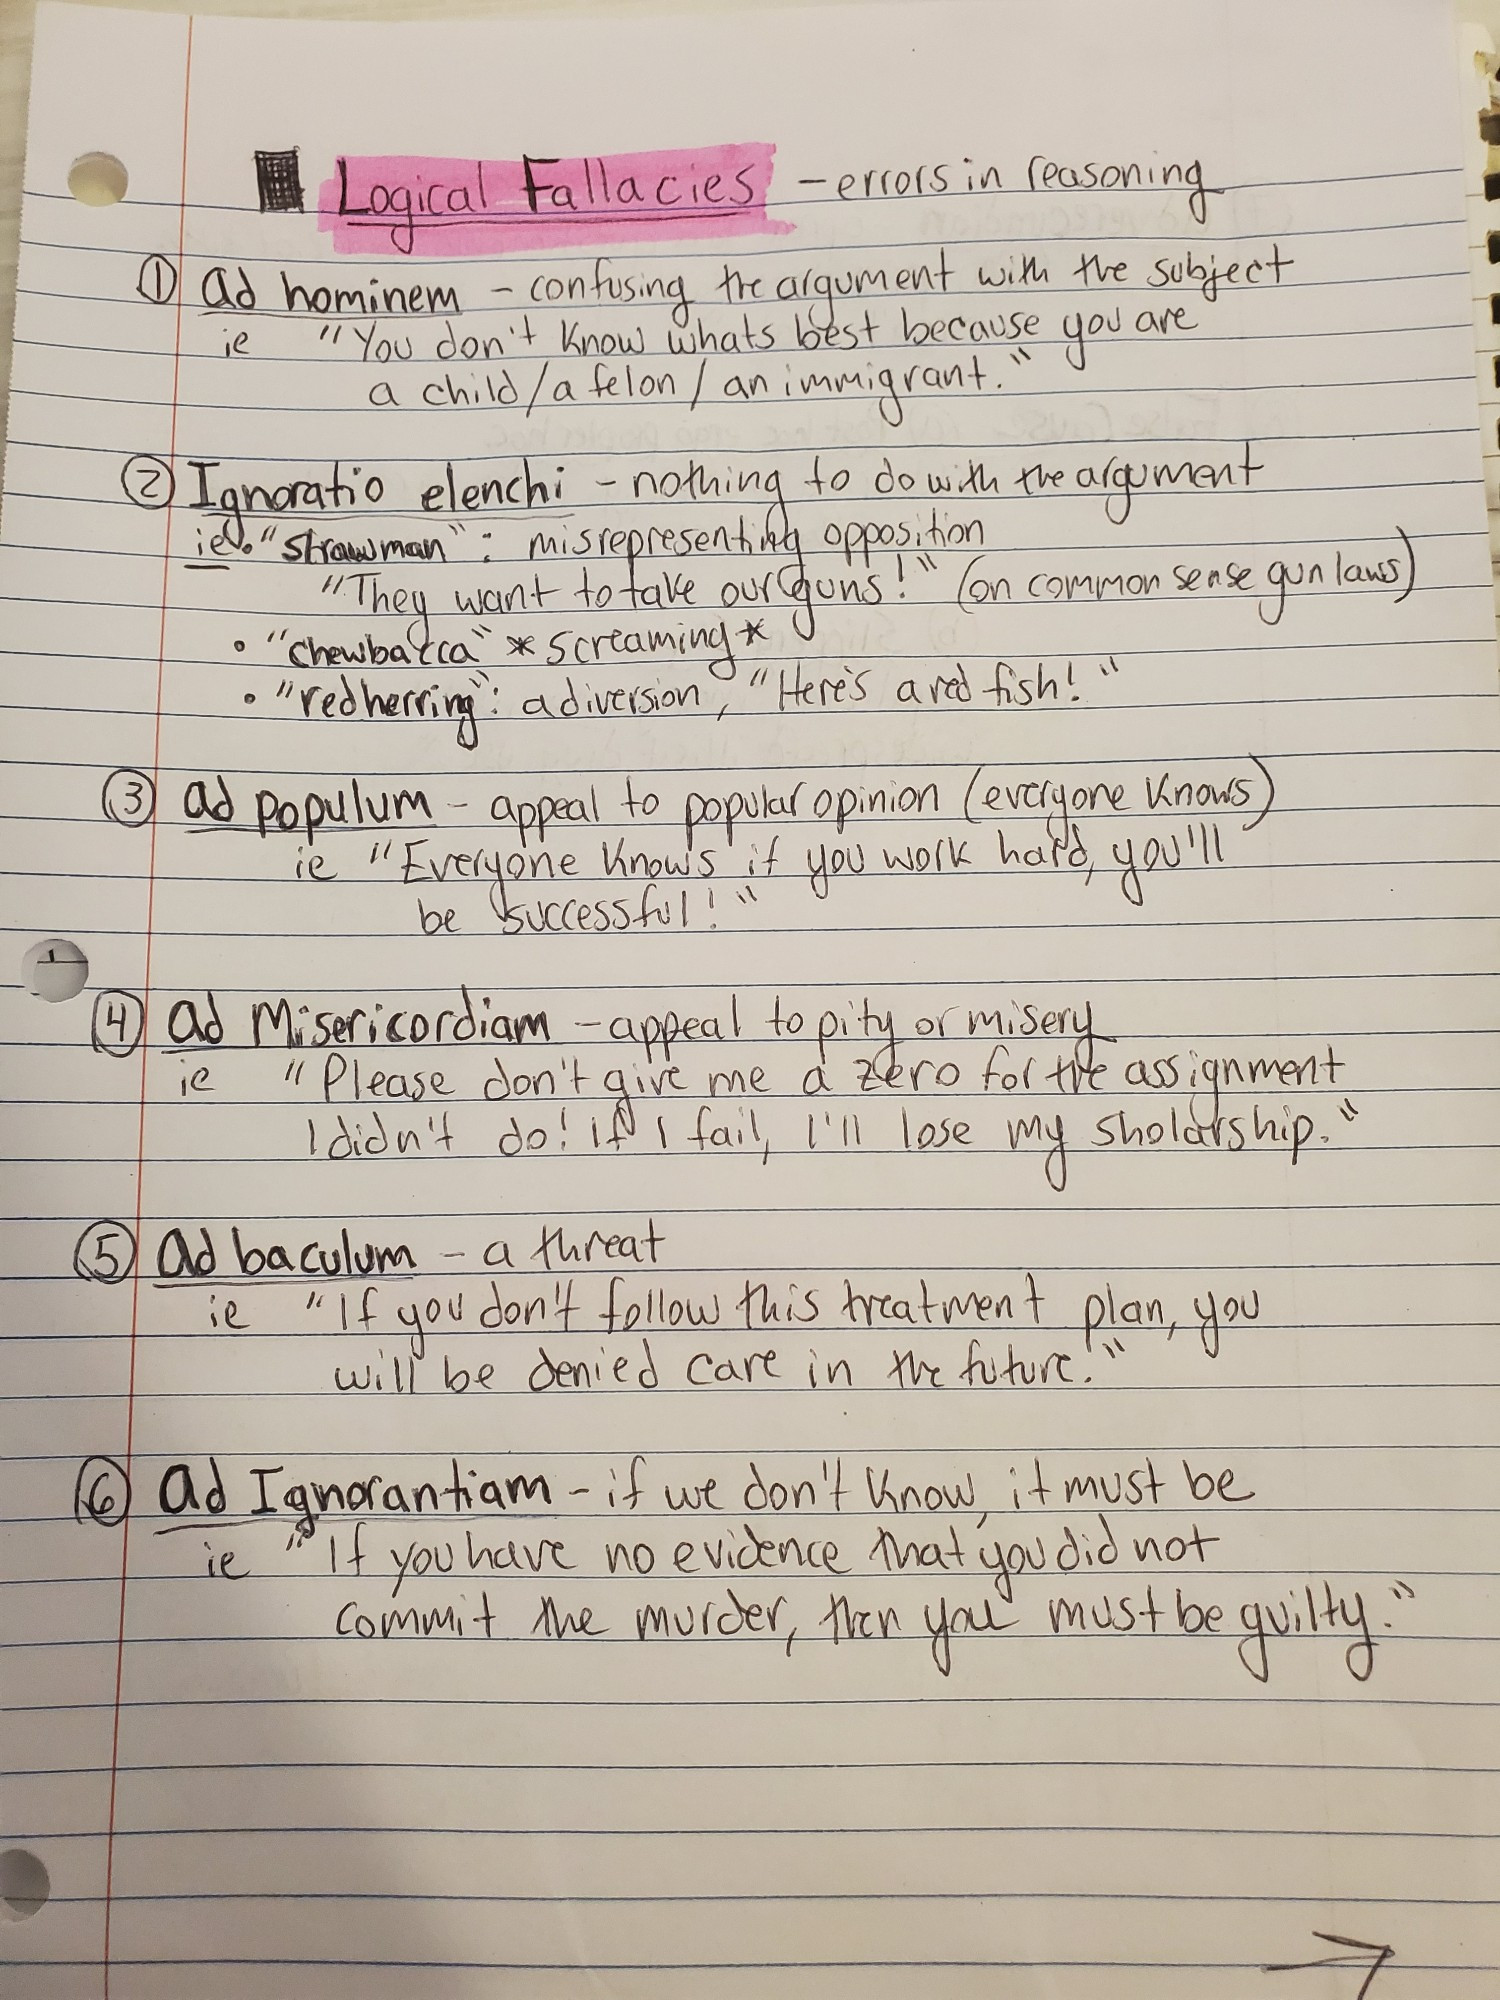 Logical Fallacies - errors in reasoning
① ad hominem - confusing the argument with the subject
ie "You don't know whats best because you are
a child/a felon/an immigrant."
② Ignoratio elenchi - nothing to do with the argument
ie • "strawman": misrepresenting opposition
"They want to take our guns!" (on common sense gun laws)
• "chewbacca" *screaming*
• "red herring": a diversion, "Here's a red fish!"
③ ad populum - appeal to popular opinion (everyone knows)
ie "Everyone knows if you work hard, you'll
be successful!"
④ ad Misericordiam - appeal to pity or misery
ie "Please don't give me a zero for the assignment
I didn't do! If I fail, I'll lose my sholarship."
⑤ ad baculum - a threat
ie "If you don't follow this treatment plan, you
will be denied care in the future."
⑥ ad Ignorantiam - if we don't know, it must be
ie "If you have no evidence that you did not
commit the murder, then you must be guilty."